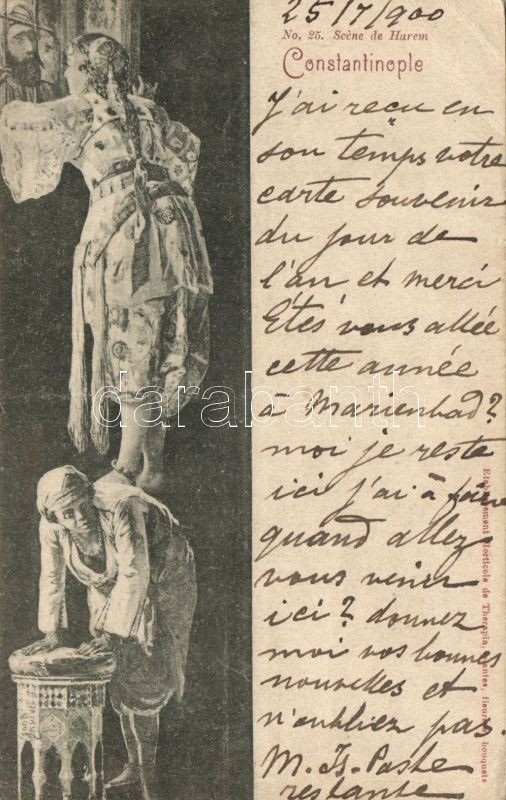 25/7/900
No. 25. Scène de Harem
Constantinople
J'ai reçu en
son temps votre
carte souvenir
du jour de
l'an et merci
Etés vous allée
cette année
à Marienbad?
moi je reste
ici j'ai à faire
quand allez
vous venir
ici? donnez
moi vos bonnes
nouvelles et
n'oubliez pas.
M. Is. Poste
restante
Etablissement Horticole de Therapia, plantes, fleurs et bouquets
darabanth